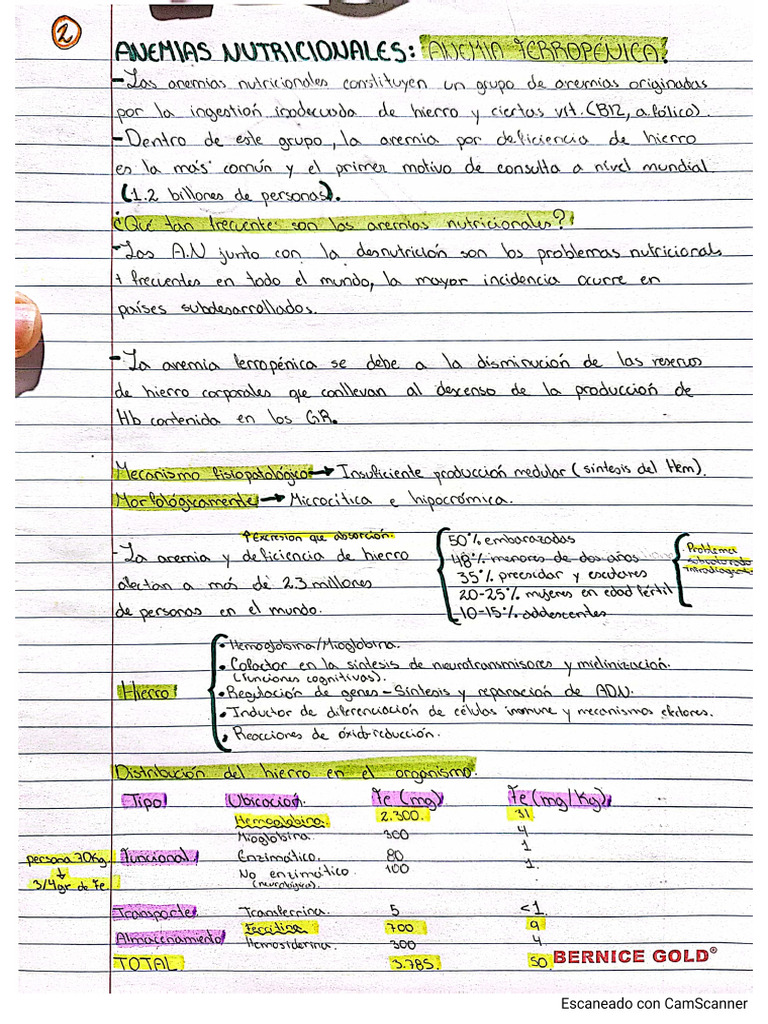 2
ANEMIAS NUTRICIONALES: ANEMIA FERROPENICA.
- Las anemias nutricionales constituyen un grupo de anemias originadas
por la ingestión inadecuada de hierro y ciertas vit. (B12, a.fólico).
- Dentro de este grupo, la anemia por deficiencia de hierro
es la más común y el primer motivo de consulta a nivel mundial
(1.2 billones de personas).
¿Qué tan frecuentes son las anemias nutricionales?
- Las A.N junto con la desnutrición son los problemas nutricionals
+ frecuentes en todo el mundo, la mayor incidencia ocurre en
países subdesarrollados.
- La anemia ferropénica se debe a la disminución de las reservas
de hierro corporales que conllevan al descenso de la producción de
Hb contenida en los GR.
Mecanismo fisiopatológico → Insuficiente producción medular (síntesis del Hem).
Morfológicamente → Microcítica e hipocrómica.
↑ Excresion que absorción.
- La anemia y deficiencia de hierro
afectan a más de 2.3 millones
de personas en el mundo.
50% embarazadas
48% menores de dos años
35% preescolar y escolares
20-25% mujeres en edad fértil
10-15% adolescentes
Problema
Hierro
• Hemoglobina/Mioglobina.
• Cofactor en la síntesis de neurotransmisores y mielinización.
(funciones cognitivas).
• Regulación de genes - Síntesis y reparación de ADN.
• Inductor de diferenciación de células inmune y mecanismos efectores.
• Reacciones de óxido-reducción.
Distribución del hierro en el organismo.
Tipo Ubicación. Fe (mg) Fe (mg/Kg)
Hemoglobina. 2.300. 31
Mioglobina. 300 4
persona 70Kg ↓ 3/4gr de Fe.
Funcional Enzimático. 80 1
No enzimático. 100 1.
(neurológica).
Transporte Transferrina. 5 <1.
Almacenamiento Ferritina 700 9
Hemosiderina. 300 4
TOTAL 3.785. 50
BERNICE GOLD®
Escaneado con CamScanner